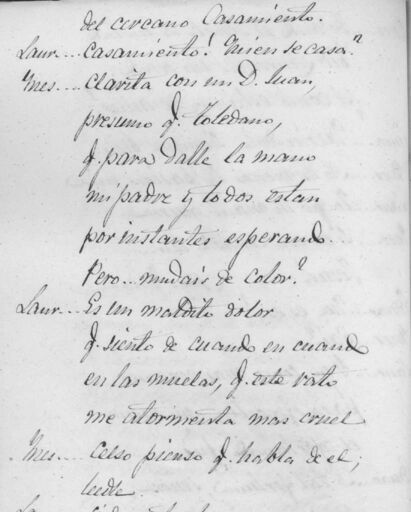 del cercano Casamiento.
Laur... Casamiento! Quien se casa?
Ynes.... Clarita con un D. Juan,
presumo q. Toledano,
q. para dalle la mano
mi padre y todos estan
por instantes esperando.
Pero... mudais de color?
Laur... Es un maldito dolor
q. siento de cuando en cuando
en las muelas, q. este rato
me atormenta mas cruel
Ynes... Celso pienso q. habla de el,
leedle.